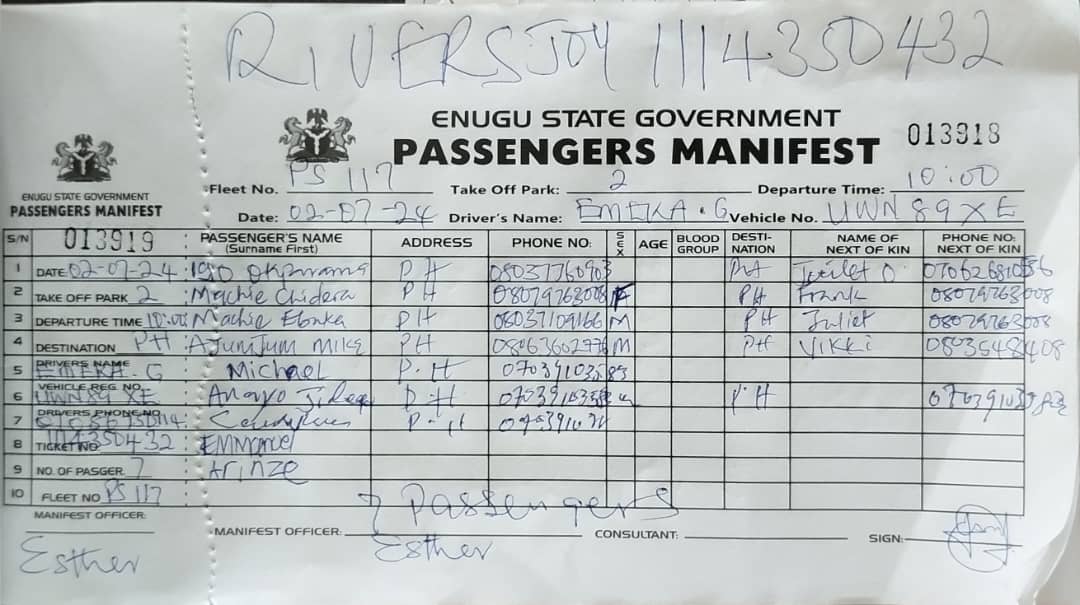 RIVERS JOY 1114350432
ENUGU STATE GOVERNMENT
PASSENGERS MANIFEST 013918
Fleet No. PS 117 Take Off Park: 2 Departure Time: 10:00
Date: 02-07-24 Driver's Name: EMEKA. G Vehicle No. UWN 89 XE
ENUGU STATE GOVERNMENT
PASSENGERS MANIFEST
013919
S/N PASSENGER'S NAME (Surname First) ADDRESS PHONE NO: SEX AGE BLOOD GROUP DESTI-NATION NAME OF NEXT OF KIN PHONE NO: NEXT OF KIN
1 DATE 02-07-24 PH PH
2 TAKE OFF PARK 2 Machie Chidera PH F PH Frank 08079763008
3 DEPARTURE TIME 10:00 Machie PH 08037109166 M PH Juliet 08079763008
4 DESTINATION PH Ajumjum Mike PH M PH Vikki 08035484408
5 DRIVERS NAME EMEKA. G Michael P.H
6 VEHICLE REG. NO. UWN 89 XE P.H P.H
7 DRIVERS PHONE NO P.H
8 TICKET NO 1114350432 EMMANUEL
9 NO. OF PASGER 7 Arinze
10 FLEET NO PS 117
7 Passengers
MANIFEST OFFICER: Esther
MANIFEST OFFICER: Esther CONSULTANT: SIGN: